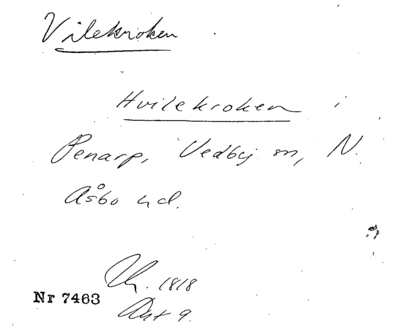 Vilekroken
Hvilekroken i
Penarp, Vedby sn, N.
Åsbo hd.
1818
Nr 7463
Akt 9.